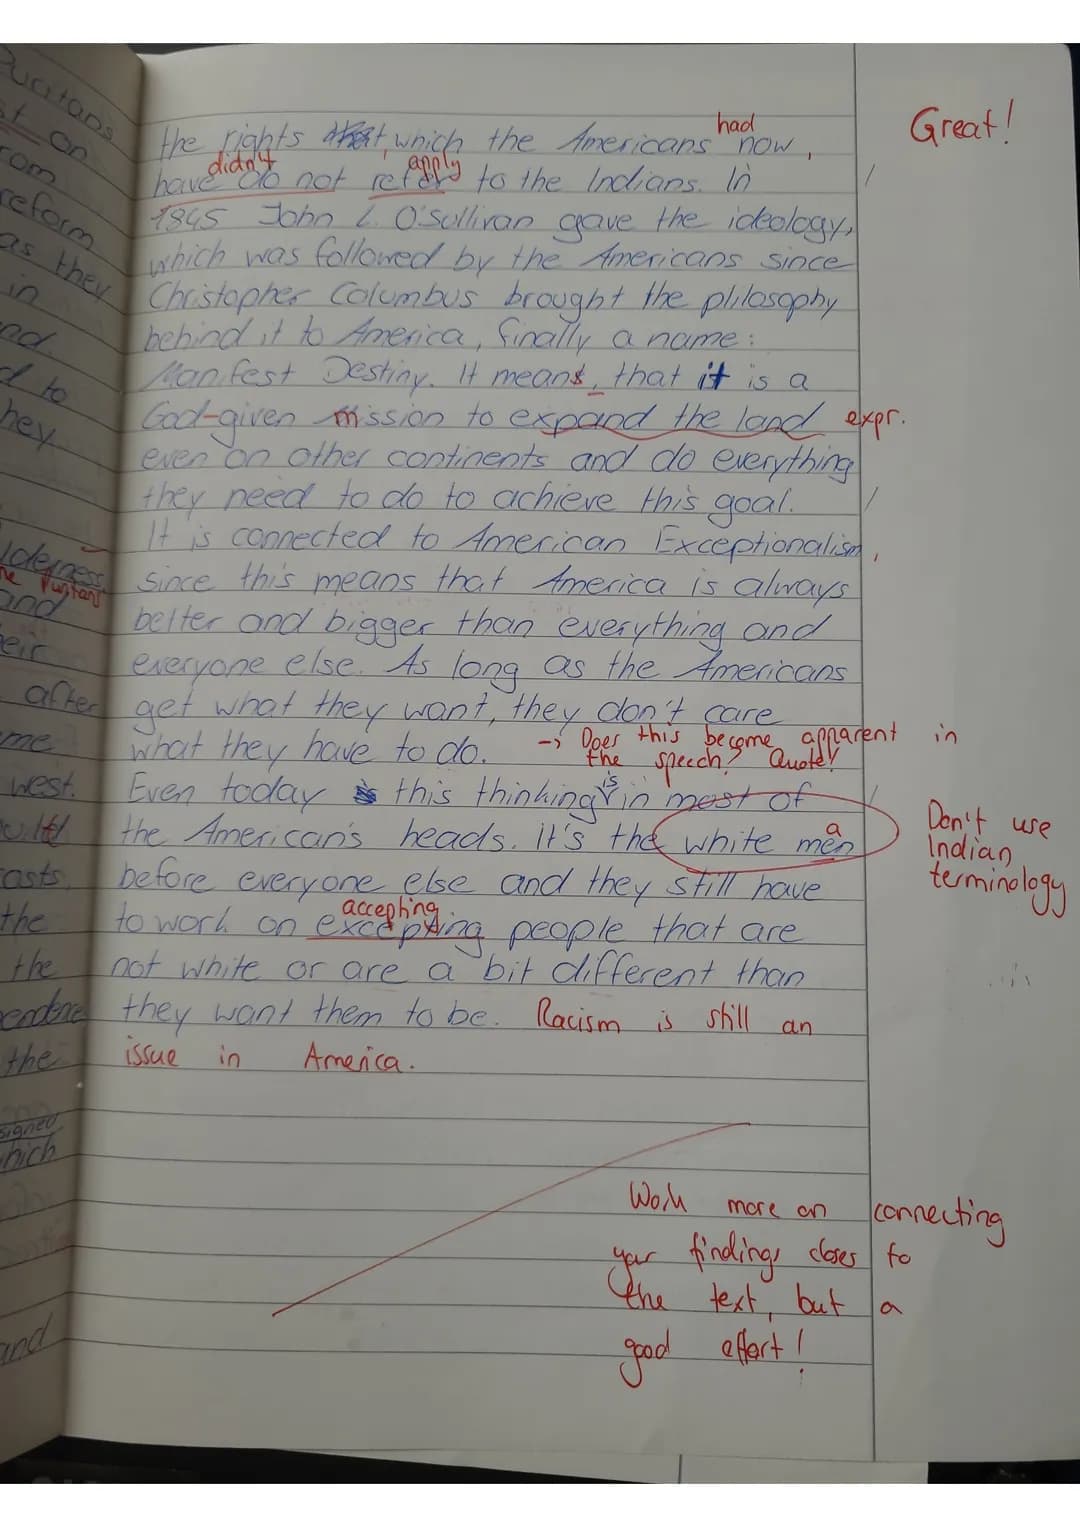 had
Great!
the rights which the Americans now,
didn't apply
have do not refer to the Indians. In
1845 John L. O'Sullivan gave the ideology,
which was followed by the Americans since
Christopher Columbus brought the philosophy
behind it to America, finally a name:
Manifest Destiny. It means, that it is a
God-given mission to expand the land expr.
even on other continents and do everything
they need to do to achieve this goal.
It is connected to American Exceptionalism,
since this means that America is always
better and bigger than everything and
everyone else. As long as the Americans
get what they want, they don't care
what they have to do. -> Does this become apparent in
the speech? Quote!
is
Even today this thinking in most of
the American's heads. it's the white men
a
Don't use
Indian
terminology
before everyone else and they still have
accepting
to work on excepting people that are
not white or are a bit different than
they want them to be. Racism is still an
issue in America.
Work more on connecting
your findings closer to
the text, but a
good effort!
Puritans
st on
rom
reform
as they
in
nd.
d to
they
the Puritans
and
heir
after
me
west.
the
the
the
signed
hich
and